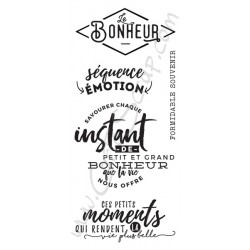 Le
BONHEUR
séquence
ÉMOTION
FORMIDABLE SOUVENIR
SAVOURER CHAQUE
instant
-DE-
PETIT ET GRAND
BONHEUR
que la vie
NOUS OFFRE
CES PETITS
moments
QUI RENDENT LA
vie plus belle